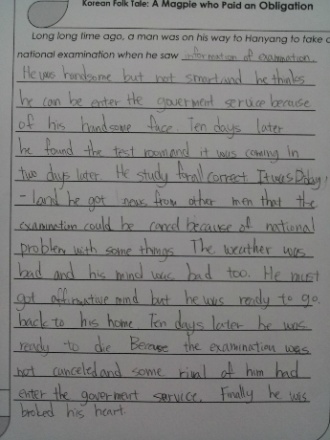 Korean Folk Tale: A Magpie who Paid an Obligation
Long long time ago, a man was on his way to Hanyang to take a
national examination when he saw information of examination.
He was handsome but not smart and he thinks
he can be enter the goverment service because
of his handsome face. Ten days later
he found the test room and it was coming in
two days later. He study for all correct. It was D-day!
and he got news from other men that the
examination could be cancel because of national
problem with some things. The weather was
bad and his mind was bad too. He must
got affirmative mind but he was ready to go
back to his home. Ten days later he was
ready to die. Because the examination was
not canceled and some rival of him had
enter the goverment service. Finally he was
broked his heart.